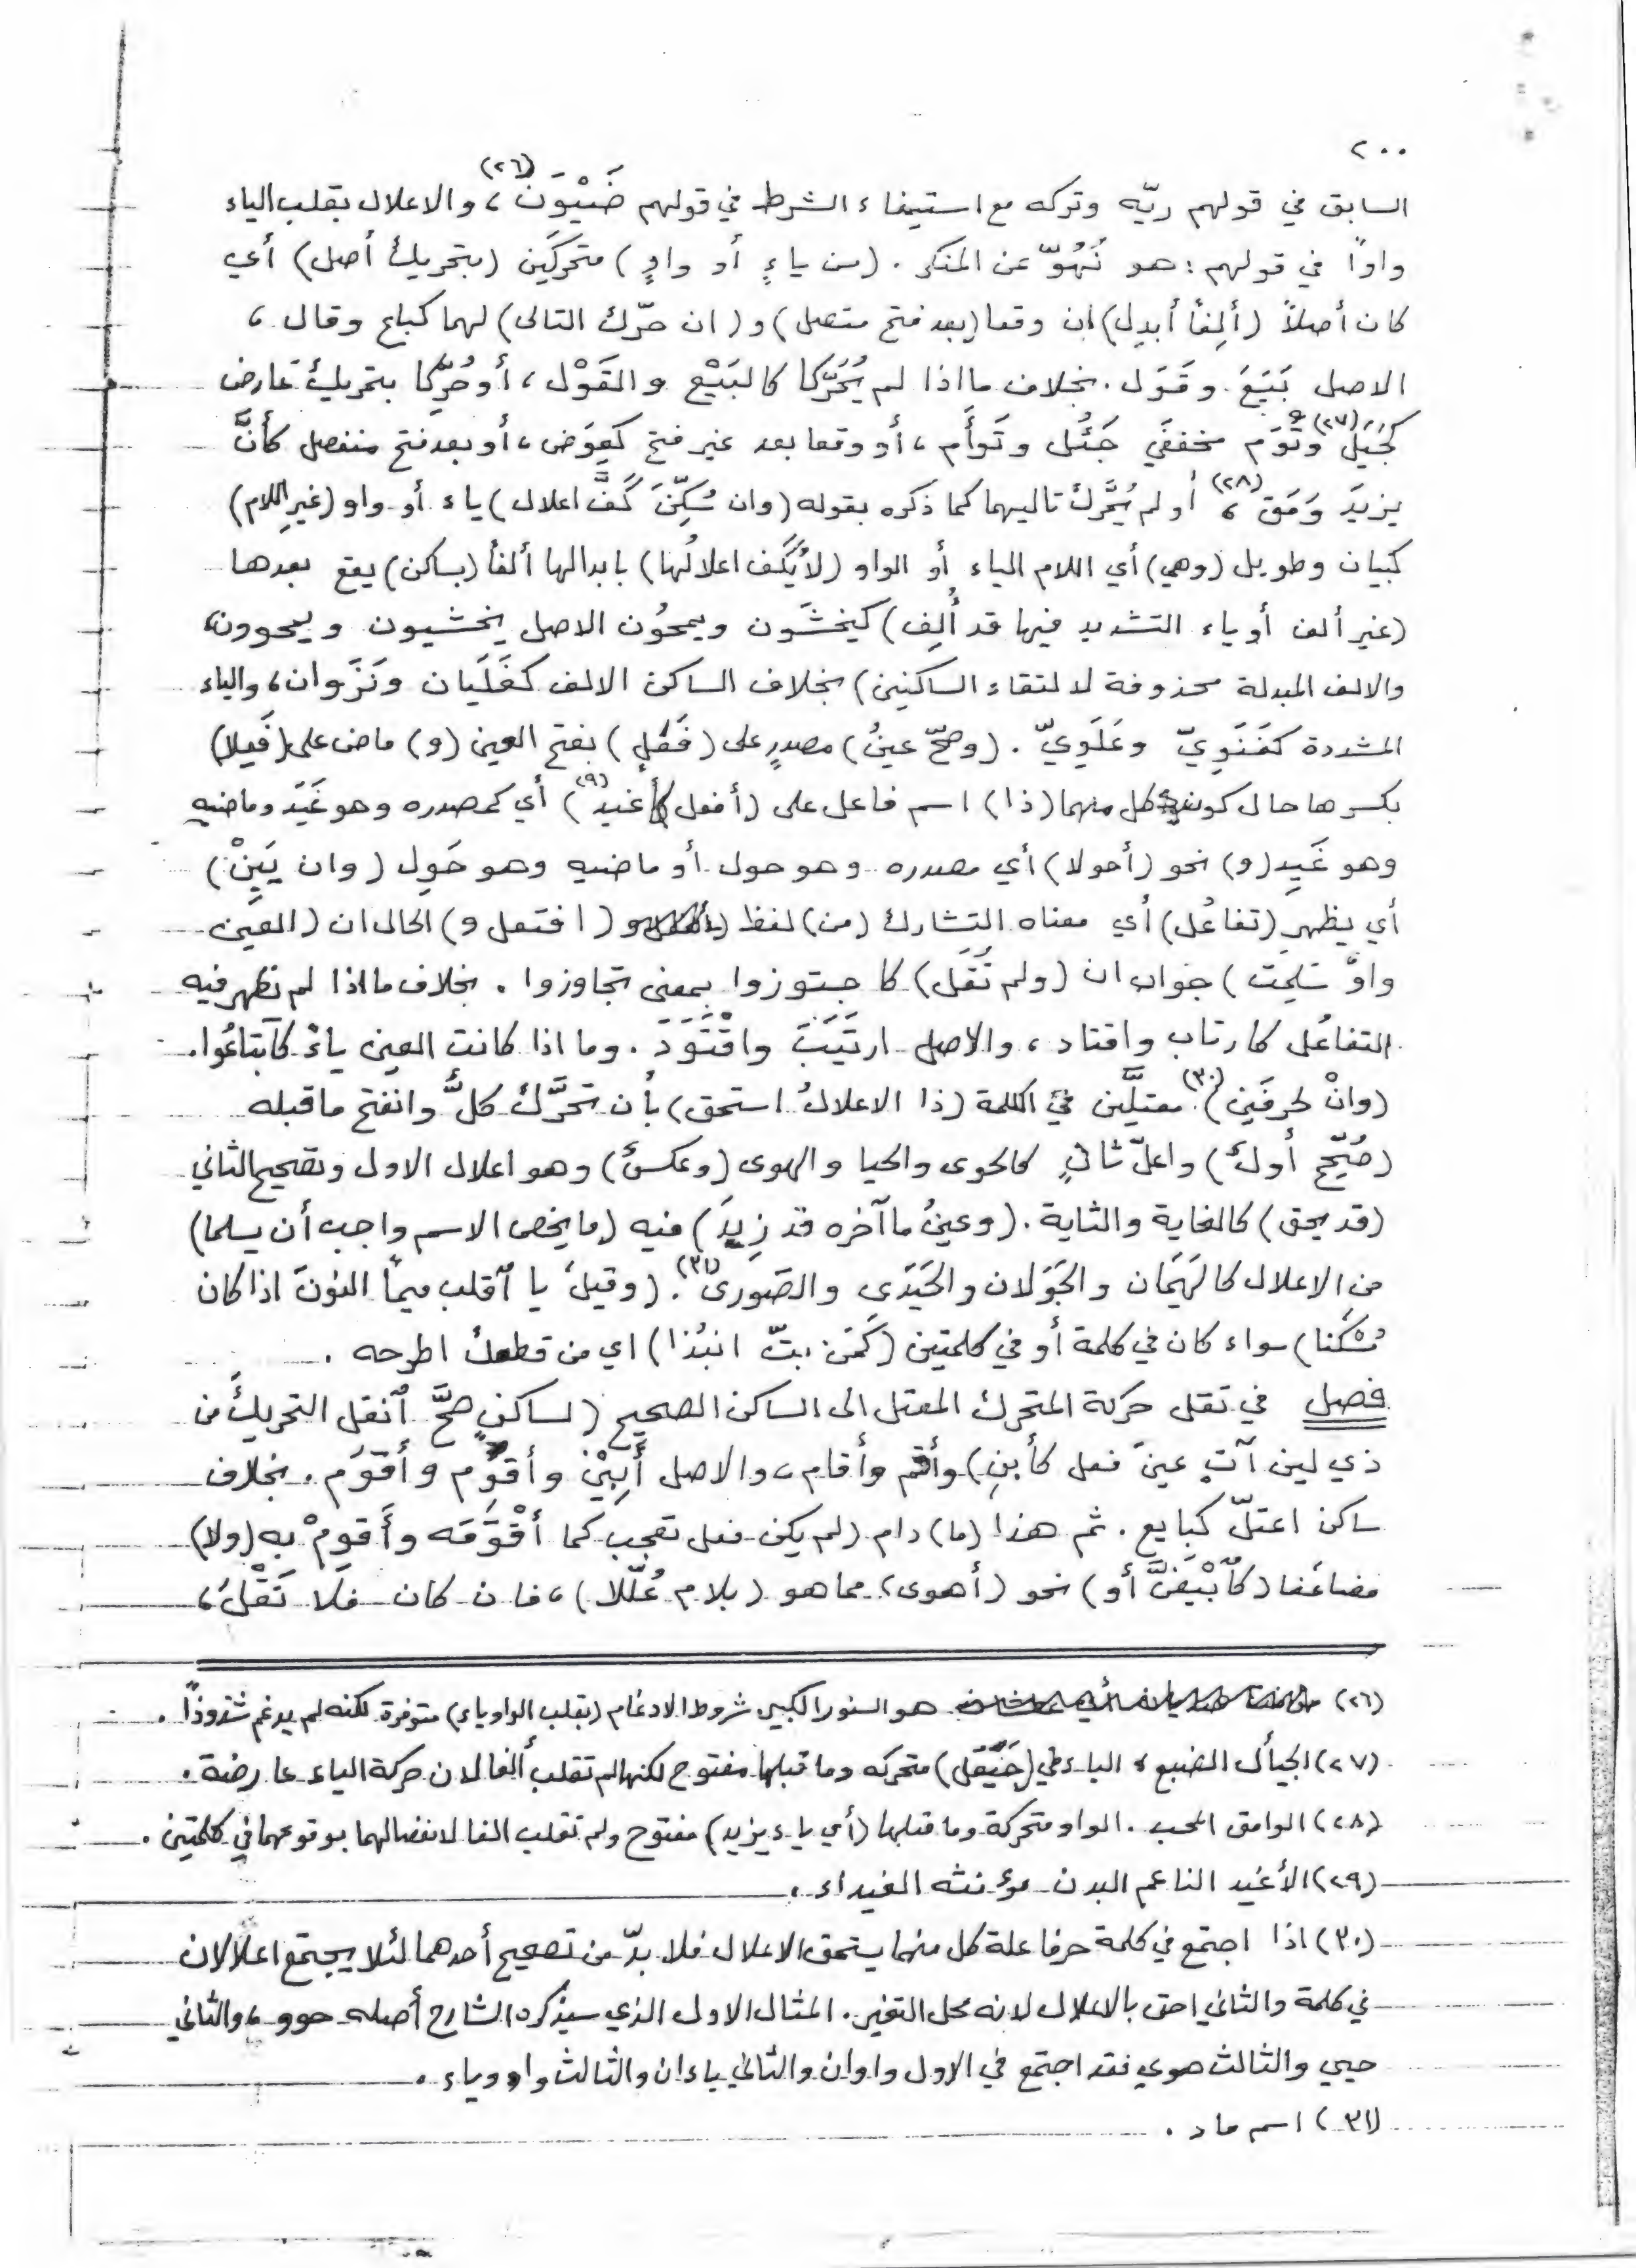 ٢٠٠
السابق في قولهم ريّه وتركه مع استيفاء الشرط في قولهم ضَيْوَن(٢٦)، والاعلال بقلب الياء
واواً في قولهم: هو نَهُوّ عن المنكر. (من ياءٍ أو واوٍ) متحركَين (بتحريك أصل) أي
كان أصلاً (ألِفاً أبدِل) ان وقعا (بعد فتح متصل) و(ان حرّك التالى) لهما كباع وقال،
الاصل بَيَعَ وقَوَل. بخلاف ما اذا لم يُحَرّكا كالبَيْع والقَوْل، أو حُرِّكا بتحريك عارض
كجَيَل(٢٧) وتَوَم مخففَي جَيْئَل وتَوأَم، أو وقعا بعد غير فتح كعِوَض، أو بعد فتح منفصل كأنَّ
يزيدَ وَمَق(٢٨)، أو لم يُحَرَّك تاليهما كما ذكره بقوله (وان سُكِّنَ كَفَّ اعلال) ياء أو واو (غيرِ اللام)
كبيان وطويل (وهي) أي اللام الياء أو الواو (لا يُكَف اعلالُها) بابدالها ألفاً (بساكن) يقع بعدها
(غير ألف أو ياء التشديد فيها قد أُلِف) كيخشَون ويمحُون الاصل يخشيون ويمحوون،
والالف المبدلة محذوفة لالتقاء الساكنين) بخلاف الساكن الالف كغَلَيان ونَزَوان، والياء
المشددة كفَنَوِيّ وعَلَوِيّ. (وصحّ عينُ) مصدرٍ على (فَعَلٍ) بفتح العين (و) ماض على (فَعِلا)
بكسرها حال كون كل منهما (ذا) اسم فاعل على (أفعل كأغيد(٢٩)) أي كمصدره وهو غَيَد وماضيه
وهو غَيِد (و) نحو (أحولا) أي مصدره وهو حول أو ماضيه وهو حَوِل (وان يَبِنْ)
أي يظهر (تفاعُل) أي معناه التشارك (من) لفظ (افتعل و) الحال ان (العين
واوٌ سَلِمَت) جواب ان (ولم تُعَل) كاجتوزوا بمعنى تجاوزوا. بخلاف ما اذا لم تظهر فيه
التفاعُل كارتاب واقتاد، والاصل ارتَيَبَ واقْتَوَدَ. وما اذا كانت العين ياءً كابتاعُوا.
(وانْ لحرفَين)(٣٠) معتلَّين في الكلمة (ذا الاعلالُ استحق) بأن تحرَّك كلٌّ وانفتح ما قبله
(صُحِّح أولٌ) واعلّ ثانٍ كالحوى والحيا والهوى (وعكسٌ) وهو اعلال الاول وتصحيح الثاني
(قد يحق) كالغاية والثاية. (وعينُ ما آخره قد زِيدَ) فيه (ما يخص الاسم واجب أن يسلما)
من الاعلال كالهَيَمان والجَوَلان والحَيَدَى والصَوَرى(٣١). (وقبلَ با اقلب ميماً النونَ اذا كان
مُسَكَّنا) سواء كان في كلمة أو في كلمتين (كمَن بتّ انبُذا) اي من قطعك اطرحه.
فصل في نقل حركة المتحرك المعتل الى الساكن الصحيح (لساكنٍ صحَّ انقل التحريكَ من
ذي لين آتٍ عينَ فعل كأبِنِ) وأقم وأقام، والاصل أَبْيِنْ وأقوِم وأقوَم. بخلاف
ساكن اعتلّ كبايع. ثم هذا (ما) دام (لم يكن فعل تعجب كما أقْوَمَه وأَقوِمْ به (ولا)
مضاعَفا (كابْيَضَّ أو) نحو (أهوى) مما هو (بلام عُلّلا)، فان كان فلا تَنْقل،
(٢٦) هو السنور الكبير شروط الادغام (بقلب الواو ياء) متوفرة لكنه لم يدغم شذوذاً.
(٢٧) الجيأل الضبع، الياء في (جَيَل) متحركه وما قبلها مفتوح لكنها لم تقلب ألفا لان حركة الياء عارضة.
(٢٨) الوامق المحب. الواو متحركة وما قبلها (أي ياء يزيد) مفتوح ولم تقلب الفا لانفصالهما بوقوعهما في كلمتين.
(٢٩) الأغيد الناعم البدن مؤنثه الغيداء.
(٣٠) اذا اجتمع في كلمة حرفا علة كل منهما يستحق الاعلال فلا بدّ من تصحيح أحدهما لئلا يجتمع اعلالان
في كلمة والثاني احق بالاعلال لانه محل التغير. المثال الاول الذي سيذكره الشارح أصله حوو، والثاني
حيي والثالث هوي فقد اجتمع في الاول واوان والثاني ياءان والثالث واو وياء.
(٣١) اسم ماء.